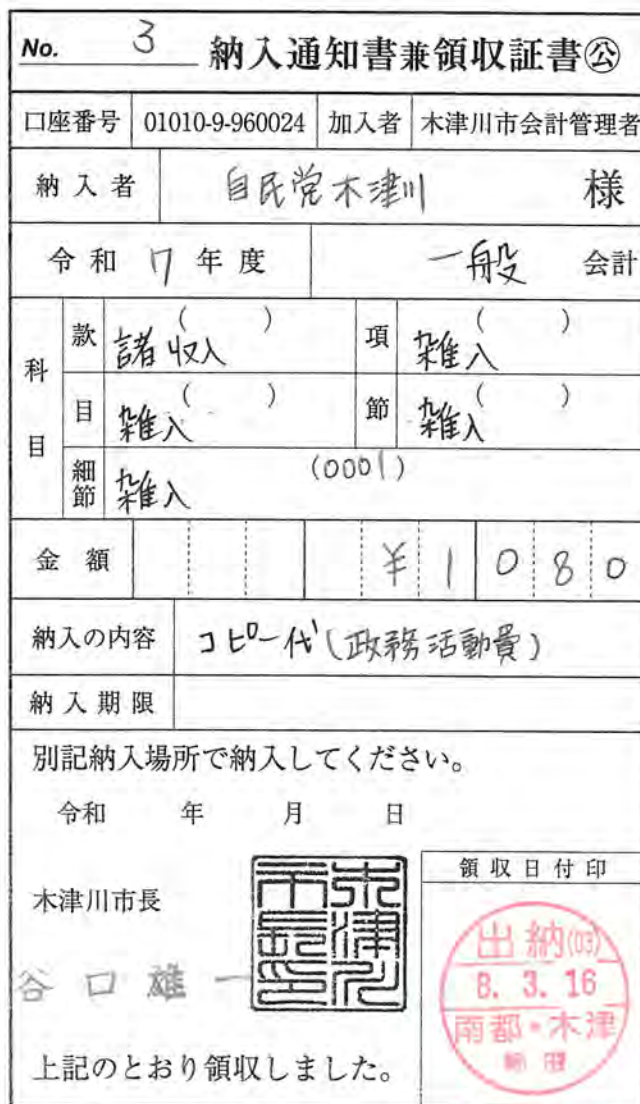 No. 3 納入通知書兼領収証書㊜
口座番号 01010-9-960024 加入者 木津川市会計管理者
納入者 自民党木津川 様
令和 7 年度 一般 会計
科目 款 諸収入 ( ) 項 雑入 ( )
目 雑入 ( ) 節 雑入 ( )
細節 雑入 (0001)
金額 ¥1080
納入の内容 コピー代(政務活動費)
納入期限
別記納入場所で納入してください。
令和 年 月 日
木津川市長
木津川市長印
谷口雄一
上記のとおり領収しました。
領収日付印
出納(03)
8. 3. 16
南都・木津